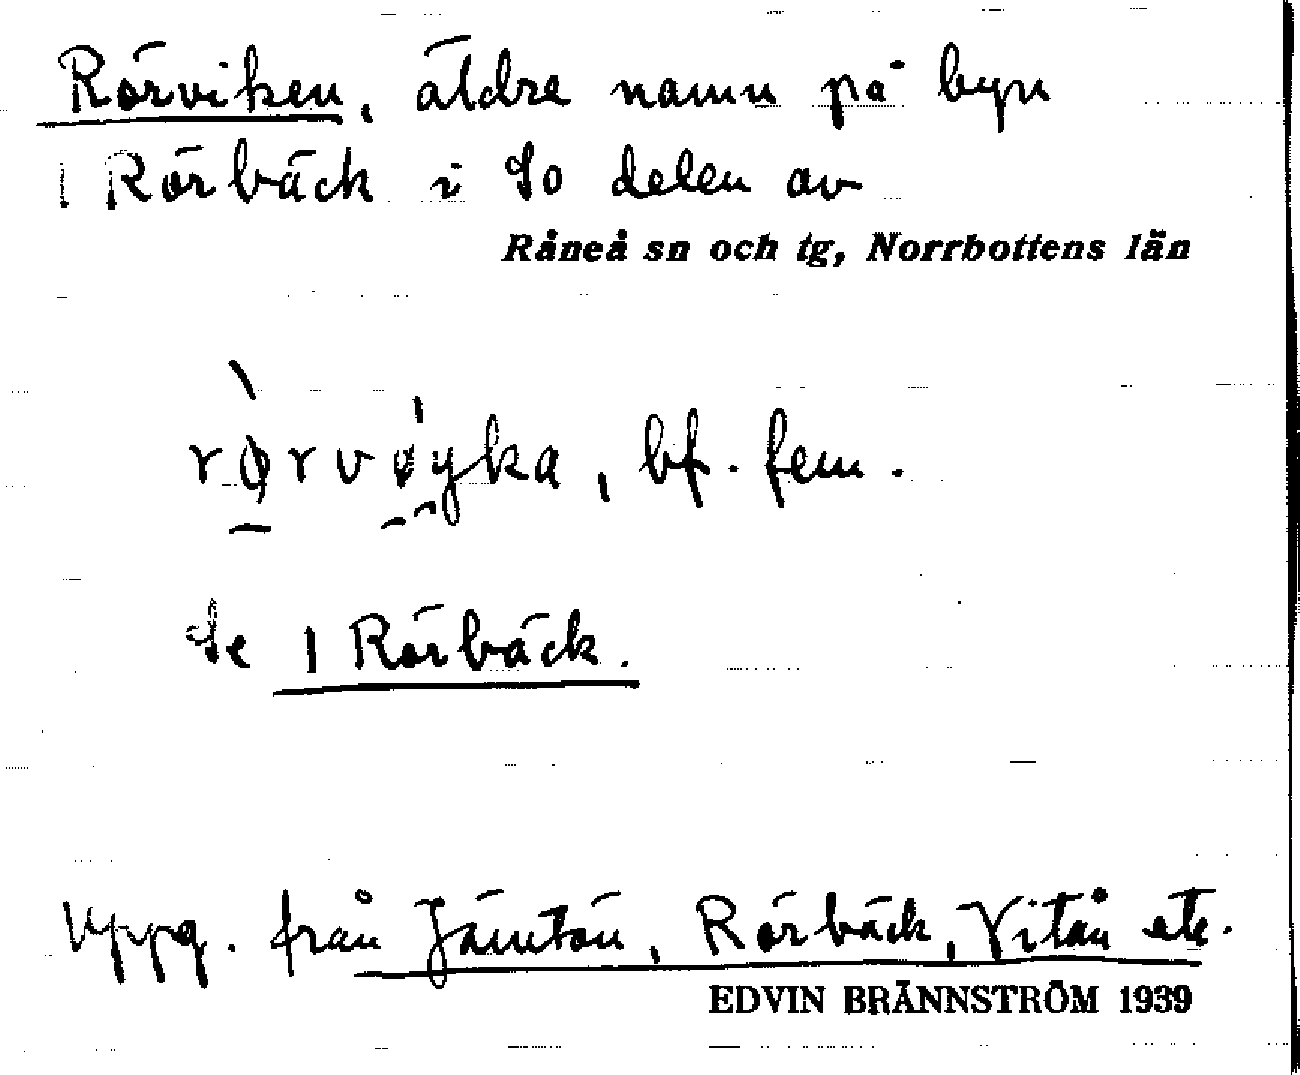 Rörviken, äldre namn på byn
1 Rörbäck i So delen av
Råneå sn och tg, Norrbottens län
rø̀rvǿyka, bf. fem.
Se 1 Rörbäck.
Uppg. från Jämtön, Rörbäck, Vitån etc.
EDVIN BRÄNNSTRÖM 1939